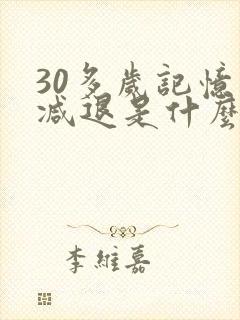 30多歲記憶
減退是什麼
李維嘉